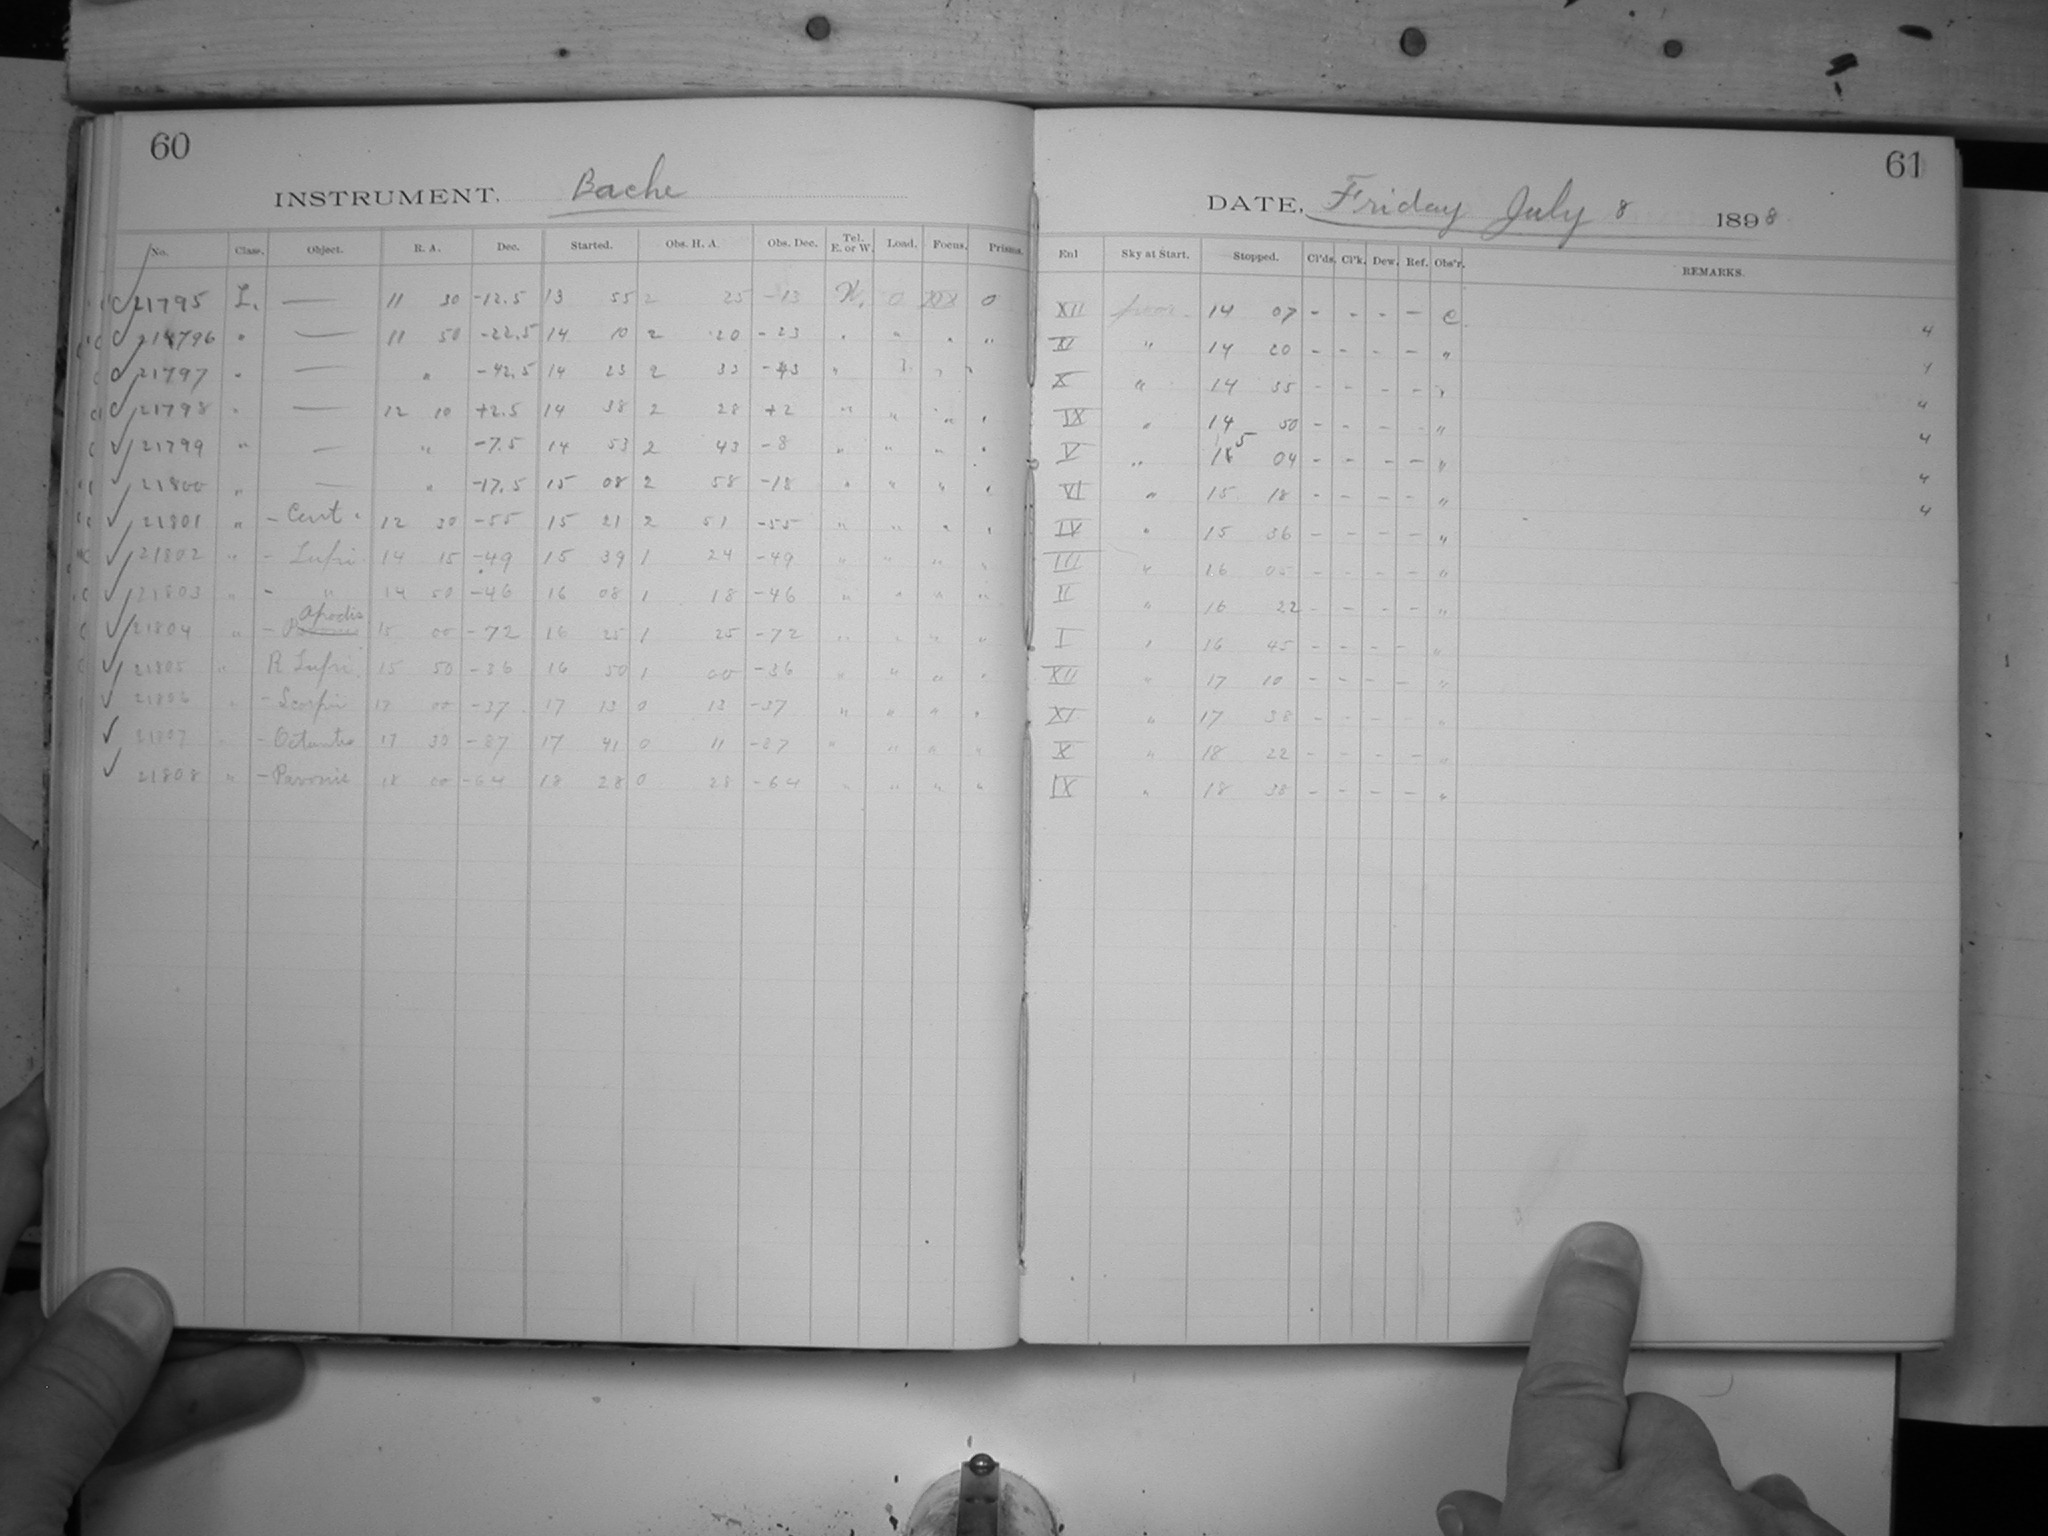 60
INSTRUMENT. Bache
No. Class. Object. R. A. Dec. Started. Obs. H. A. Obs. Dec. Tel. E. or W. Load. Focus. Prisms.
C 21795 L. — 11 30 -12.5 13 55 2 25 -13 W. 0 0
C 21796 " — 11 50 -22.5 14 10 2 20 -23 " " " "
C 21797 " — " -42.5 14 23 2 33 -43 " " "
C 21798 " — 12 10 +2.5 14 38 2 28 +2 " " " "
C 21799 " — " -7.5 14 53 2 43 -8 " " " "
21800 " — " -17.5 15 08 2 58 -18 " " " "
21801 " - Cent. 12 30 -55 15 21 2 51 -55 " " " "
21802 " - Lupi 14 15 -49 15 39 1 24 -49 " " " "
21803 " - " 14 50 -46 16 08 1 18 -46 " " " "
Apodis
21804 " - 15 00 -72 16 25 1 25 -72 " " " "
21805 " R Lupi 15 50 -36 16 50 1 00 -36 " " " "
21806 " - Scorpii 17 00 -37 17 13 0 13 -37 " " " "
21807 " - Octantis 17 30 -87 17 41 0 11 -87 " " " "
21808 " - Pavonis 18 00 -64 18 28 0 28 -64 " " " "
61
DATE, Friday July 8 1898
Enl Sky at Start. Stopped. Cl'ds. Cl'k. Dew. Ref. Obs'r. REMARKS.
XII poor 14 07 - - - - C.
XI " 14 20 - - - - " 4
X " 14 35 - - - - " 4
IX " 14 50 - - - - " 4
V " 15 04 - - - - " 4
VI " 15 18 - - - - " 4
IV " 15 36 - - - - " 4
III " 16 05 - - - - "
II " 16 22 - - - - "
I " 16 45 - - - - "
XII " 17 10 - - - - "
XI " 17 38 - - - - "
X " 18 22 - - - - "
IX " 18 38 - - - - "